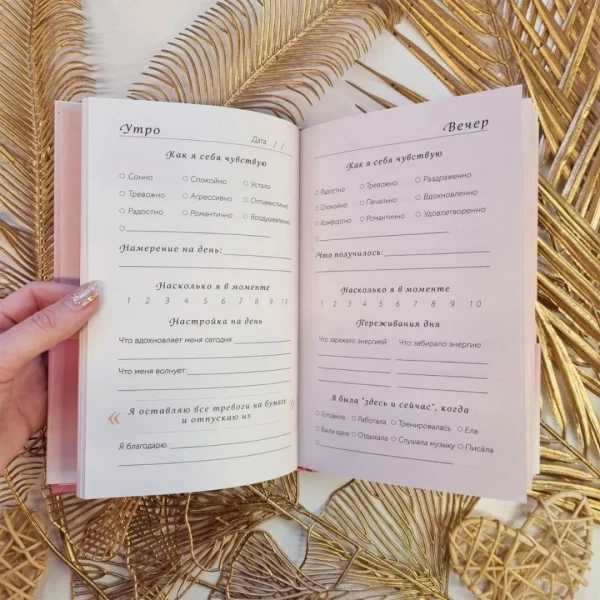 Утро
Дата / /
Как я себя чувствую
Сонно Спокойно Устало
Тревожно Агрессивно Оптимистично
Радостно Романтично Воодушевленно
Намерение на день:
Насколько я в моменте
1 2 3 4 5 6 7 8 9 10
Настройка на день
Что вдохновляет меня сегодня
Что меня волнует:
« Я оставляю все тревоги на бумаге »
и отпускаю их
Я благодарю
Вечер
Как я себя чувствую
Радостно Тревожно Раздраженно
Спокойно Печально Вдохновленно
Комфортно Романтично Удовлетворенно
Что получилось:
Насколько я в моменте
1 2 3 4 5 6 7 8 9 10
Переживания дня
Что заряжало энергией Что забирало энергию
Я была "здесь и сейчас", когда
Готовила Работала Тренировалась Ела
Была одна Отдыхала Слушала музыку Писала